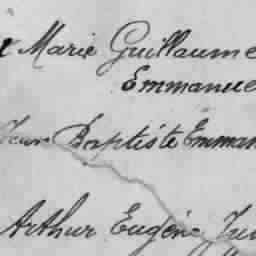 Marie Guillaume
Emmanue
Jean Baptiste Emman
Arthur Eugène Ju